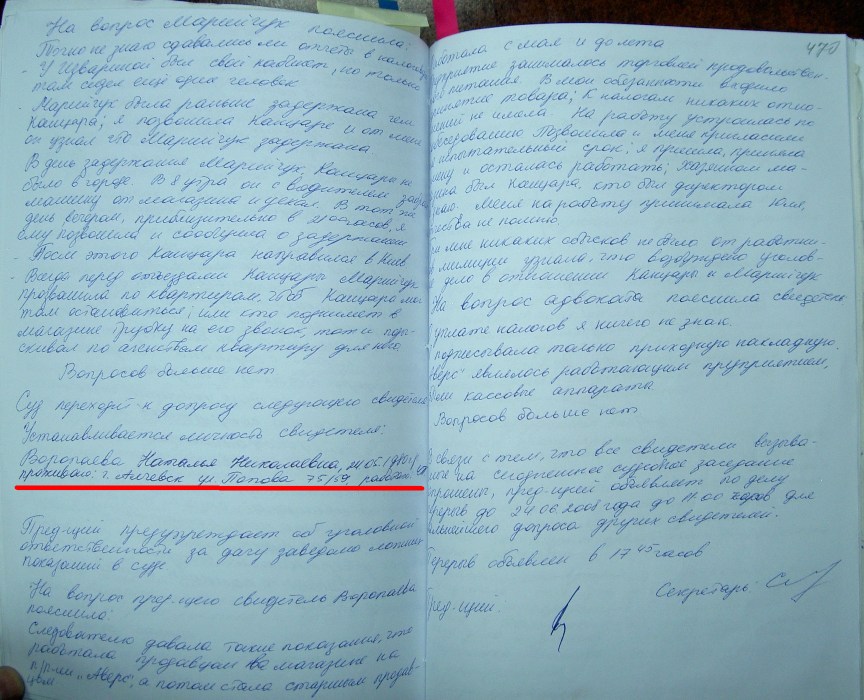 На вопрос Марийчук пояснила:
Точно не знаю сдавались ли отчеты в налоговую
- У Извариной был свой кабинет, но только
там сидел ещё один человек
- Марийчук была раньше задержана чем
Канцара; я позвонила Канцаре и от меня
он узнал что Марийчук задержана
В день задержания Марийчук, Канцары не
было в городе. В 8 утра он с водителем
машину от магазина и уехал. В тот же
день вечером, приблизительно в часов, я
ему позвонила и сообщила о задержании
- После этого Канцара направился в Киев
- Всегда перед отъездами Канцары Марийчук
прозванила по квартирам, чтоб Канцара мог
там остановиться; или кто поднимет в
магазине трубку на его звонок, тот и поды-
скивал по агенствам квартиру для него
Вопросов больше нет
Суд переходит к допросу следующего свидетеля
Устанавливается личность свидетеля:
Воропаева Наталья Николаевна, 24.05.
проживаю: г. Алчевск ул. Попова 75/59,
Пред-щий предупреждает об уголовной
ответственности за дачу заведомо ложных
показаний в суде
На вопрос пред-щего свидетель Воропаева
пояснила:
Следователю давала такие показания, что
работала продавцом в магазине на
"Аверс", а потом стала старшим продав-
цом
47
работала с мая и до лета
предприятие занималось торговлей продовольствен-
питания. В мои обязанности входило
принятие товара; к налогам никаких отно-
шений не имела. На работу устроилась по
Позвонила и меня пригласили
испытательный срок; я пришла, приняла
и осталась работать; Хозяином ма-
был Канцара, кто был директором
знаю. Меня на работу принимала Юля,
отчества не помню
мне никаких обысков не было от работни-
милиции узнала, что возбуждено уголов-
дело в отношении Канцары и Марийчук
На вопрос адвоката пояснила свидетель
уплате налогов я ничего не знаю.
подписывала только приходную накладную.
"Аверс" являлось работающим предприятием,
были кассовые аппарата
Вопросов больше нет
В связи с тем, что все свидетели вызыва-
на сегодняшнее судебное заседание
опрошены, пред-щий объявляет по делу
перерыв до 24.06.2005 года до 11.00 часов для
дальнейшего допроса других свидетелей.
Перерыв объявлен в 17 45 часов
Секретарь:
Пред-щий.